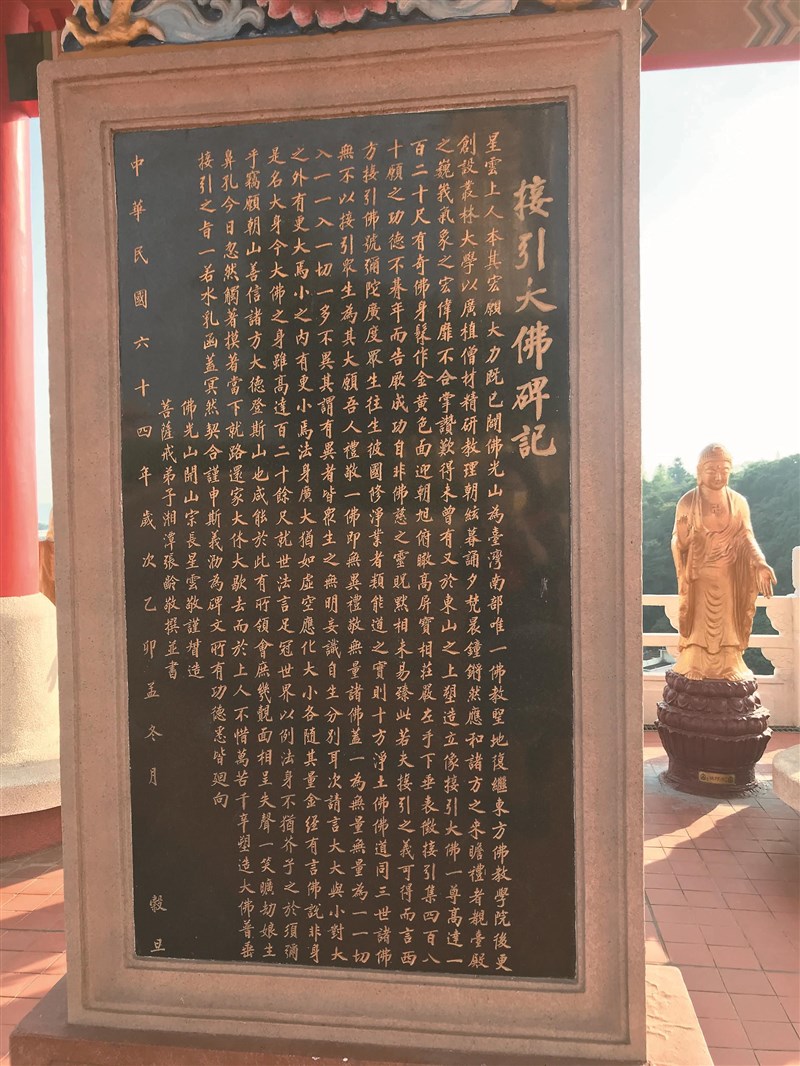 接引大佛碑記
星雲上人本其宏願大力既已開佛光山為臺灣南部唯一佛教聖地復繼東方佛教學院後更
創設叢林大學以廣植僧材精研教理朝絃暮誦夕梵晨鐘鏘然應和諸方之來瞻禮者覩臺殿
之巍峩氣象之宏偉靡不合掌讚歎得未曾有又於東山之上塑造立像接引大佛一尊高達一
百二十尺有奇佛身髹作金黃色面迎朝旭俯瞰高屏寶相莊嚴左手下垂表徵接引集四百八
十願之功德不朞年而告厥成功自非佛慈之靈貺黙相未易臻此若夫接引之義可得而言西
方接引佛號彌陀廣度眾生往生彼國修淨業者類能道之實則十方淨土佛佛道同三世諸佛
無不以接引眾生為其大願吾人禮敬一佛即無異禮敬無量諸佛蓋一為無量無量為一一切
入一一入一切一多不異其謂有異者皆眾生之無明妄識自生分別耳次請言大大與小對大
之外有更大焉小之內有更小焉法身廣大猶如虛空應化大小各隨其量金經有言佛說非身
是名大身今大佛之身雖高達百二十餘尺就世法言足冠世界以例法身不猶芥子之於須彌
乎竊願朝山善信諸方大德登斯山也咸能於此有所領會庶幾覿面相呈失聲一笑曠劫娘生
鼻孔今日忽然觸著摸著當下就路還家大休大歇去而於上人不惜萬苦千辛塑造大佛普垂
接引之旨一若水乳函蓋冥然契合謹申斯義泐為碑文所有功德悉皆迴向
佛光山開山宗長星雲敬謹督造
菩薩戒弟子湘潭張齡敬撰並書
中華民國六十四年歲次乙卯孟冬月 穀旦